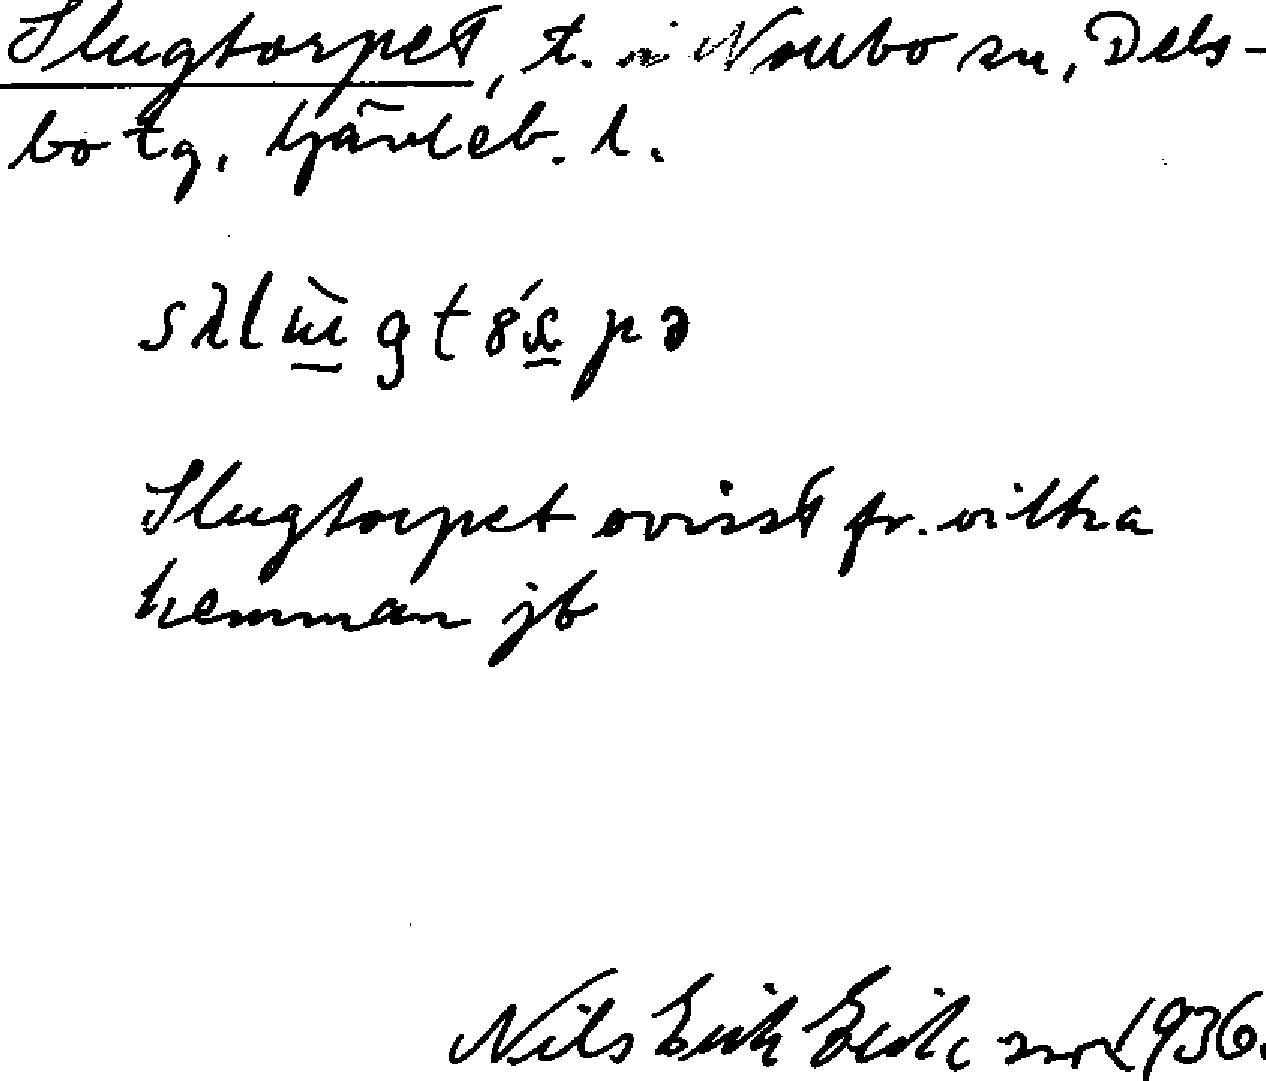 Slugtorpet, t. i Norrbo sn, Dels-
bo tg, Gävleb. l.
Slugtorpet ovisst fr. vilka
hemman jb
Nils Erik 1936.